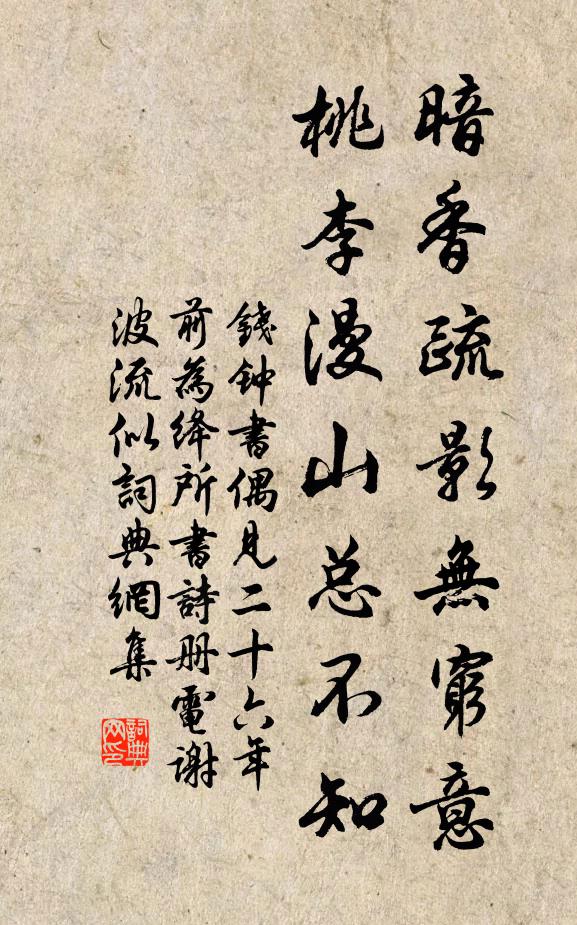 暗香疏影無窮意
桃李漫山总不知
錢钟書偶見二十六年
前為绛所書詩册電謝
波流似詞典網集
詞典网印